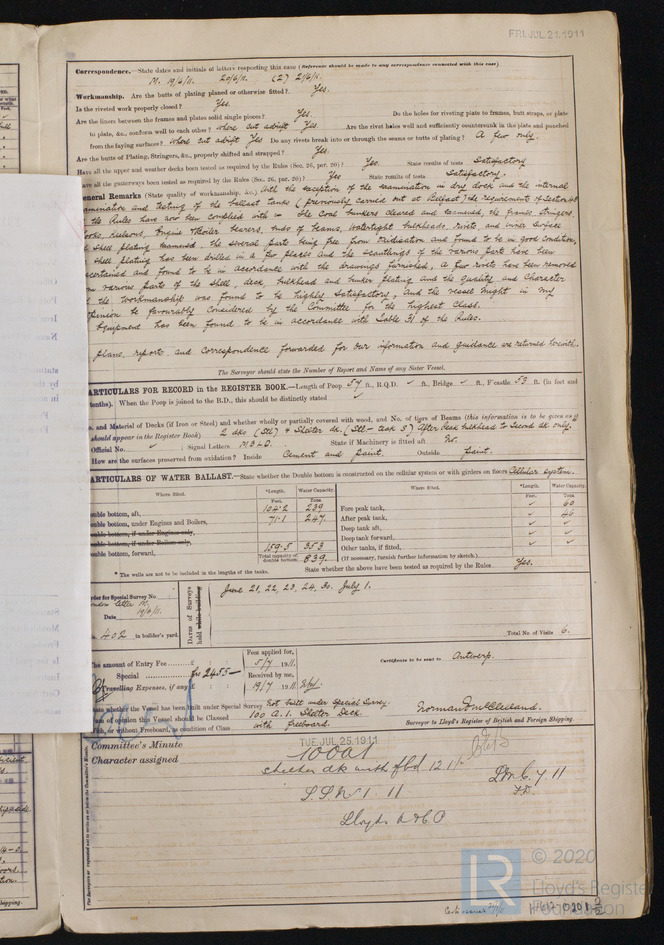 FRI. JUL 21. 1911
Correspondence.—State dates and initials of letters respecting this case (Reference should be made to any correspondence connected with this case)
M. 19/6/11. 20/6/11. (2) 21/6/11.
Workmanship. Are the butts of plating planed or otherwise fitted? Yes.
Is the rivetted work properly closed? Yes.
Are the liners between the frames and plates solid single pieces? Yes. Do the holes for rivetting plate to frames, butt straps, or plate
to plate, &c., conform well to each other? Where cut adrift Yes Are the rivet holes well and sufficiently countersunk in the plate and punched
from the faying surfaces? Where cut adrift Yes Do any rivets break into or through the seams or butts of plating? A few only.
Are the butts of Plating, Stringers, &c., properly shifted and strapped? Yes.
Have all the upper and weather decks been tested as required by the Rules (Sec. 26, par. 20)? Yes. State results of tests Satisfactory
ave all the gutterways been tested as required by the Rules (Sec. 26, par. 20)? Yes State results of tests Satisfactory.
eneral Remarks (State quality of workmanship, &c.) With the exception of the examination in dry dock and the internal
amination and testing of the ballast tanks (previously carried out at Belfast) the requirements of Section 48
the Rules have now been complied with in the Coal bunkers cleared and examined, the frames, Stringers,
ooks, Keelsons, Engine & Boiler bearers, ends of beams, Watertight bulkheads, rivets and inner surface
shell plating examined. the several parts being free from oxidisation and found to be in good condition,
shell plating has been drilled in a few places and the scantlings of the various parts have been
certained and found to be in accordance with the drawings furnished, A few rivets have been removed
various parts of the shell, deck, bulkhead and bunker plating and the quality and Character
the Workmanship was found to be highly satisfactory, and the vessel might in my
opinion be favourably considered by the Committee for the highest Class.
Equipment has been found to be in accordance with Table 31 of the Rules.
plans, reports and correspondence forwarded for our information and guidance are returned herewith.
The Surveyor should state the Number of Report and Name of any Sister Vessel.
ARTICULARS FOR RECORD in the REGISTER BOOK.—Length of Poop 57 ft., R.Q.D. ✓ ft., Bridge ✓ ft., F'castle 53 ft. (in feet and
tenths). When the Poop is joined to the B.D., this should be distinctly stated ✓
o. and Material of Decks (if Iron or Steel) and whether wholly or partially covered with wood, and No. of tiers of Beams (this information is to be given as it
should appear in the Register Book) 2 dks (Stl) & Shelter dk. After peak bulkhead to second dk only.
Official No. ✓ ; Signal Letters M B L D. State if Machinery is fitted aft No.
How are the surfaces preserved from oxidation? Inside Cement and paint. Outside paint.
ARTICULARS OF WATER BALLAST.—State whether the Double bottom is constructed on the cellular system or with girders on floors Cellular system.
Where fitted. *Length. Water Capacity. Where fitted. *Length. Water Capacity.
Feet. Tons. Feet. Tons.
ouble bottom, aft, 104.2 239 Fore peak tank, ✓ 60
ouble bottom, under Engines and Boilers, 71.1 247 After peak tank, ✓ 46
ouble bottom, if under Engines only, Deep tank aft, ✓ ✓
ouble bottom, if under Boilers only, Deep tank forward, ✓ ✓
ouble bottom, forward, 159.5 353 Other tanks, if fitted, ✓ ✓
Total capacity of double bottom. 839 (If necessary, furnish further information by sketch.)
* The wells are not to be included in the lengths of the tanks. State whether the above have been tested as required by the Rules Yes.
rder for Special Survey No.
London letter M.
Date 19/6/11.
402 in builder's yard.
Dates of Surveys held while building
June 21, 22, 23, 24, 30. July 1.
Total No. of Visits 6.
he amount of Entry Fee £ : : Fees applied for, 5/7 1911. Certificate to be sent to Antwerp.
Special Frs 2455— Received by me,
Travelling Expenses, if any £ 19/7 1911
tate whether the Vessel has been built under Special Survey Not built under Special Survey.
am of opinion this Vessel should be Classed 100 A. 1. Shelter Deck
ith, or without Freeboard, as condition of Class with freeboard.
Norman F. McClelland.
Surveyor to Lloyd's Register of British and Foreign Shipping.
Committee's Minute TUE. JUL 25. 1911
Character assigned 100A1
shelter dk with fbd 12 1/-
L.M.C. 7 11
F.D.
Lloyds A & C P
© 2020
Lloyd's Register
Foundation